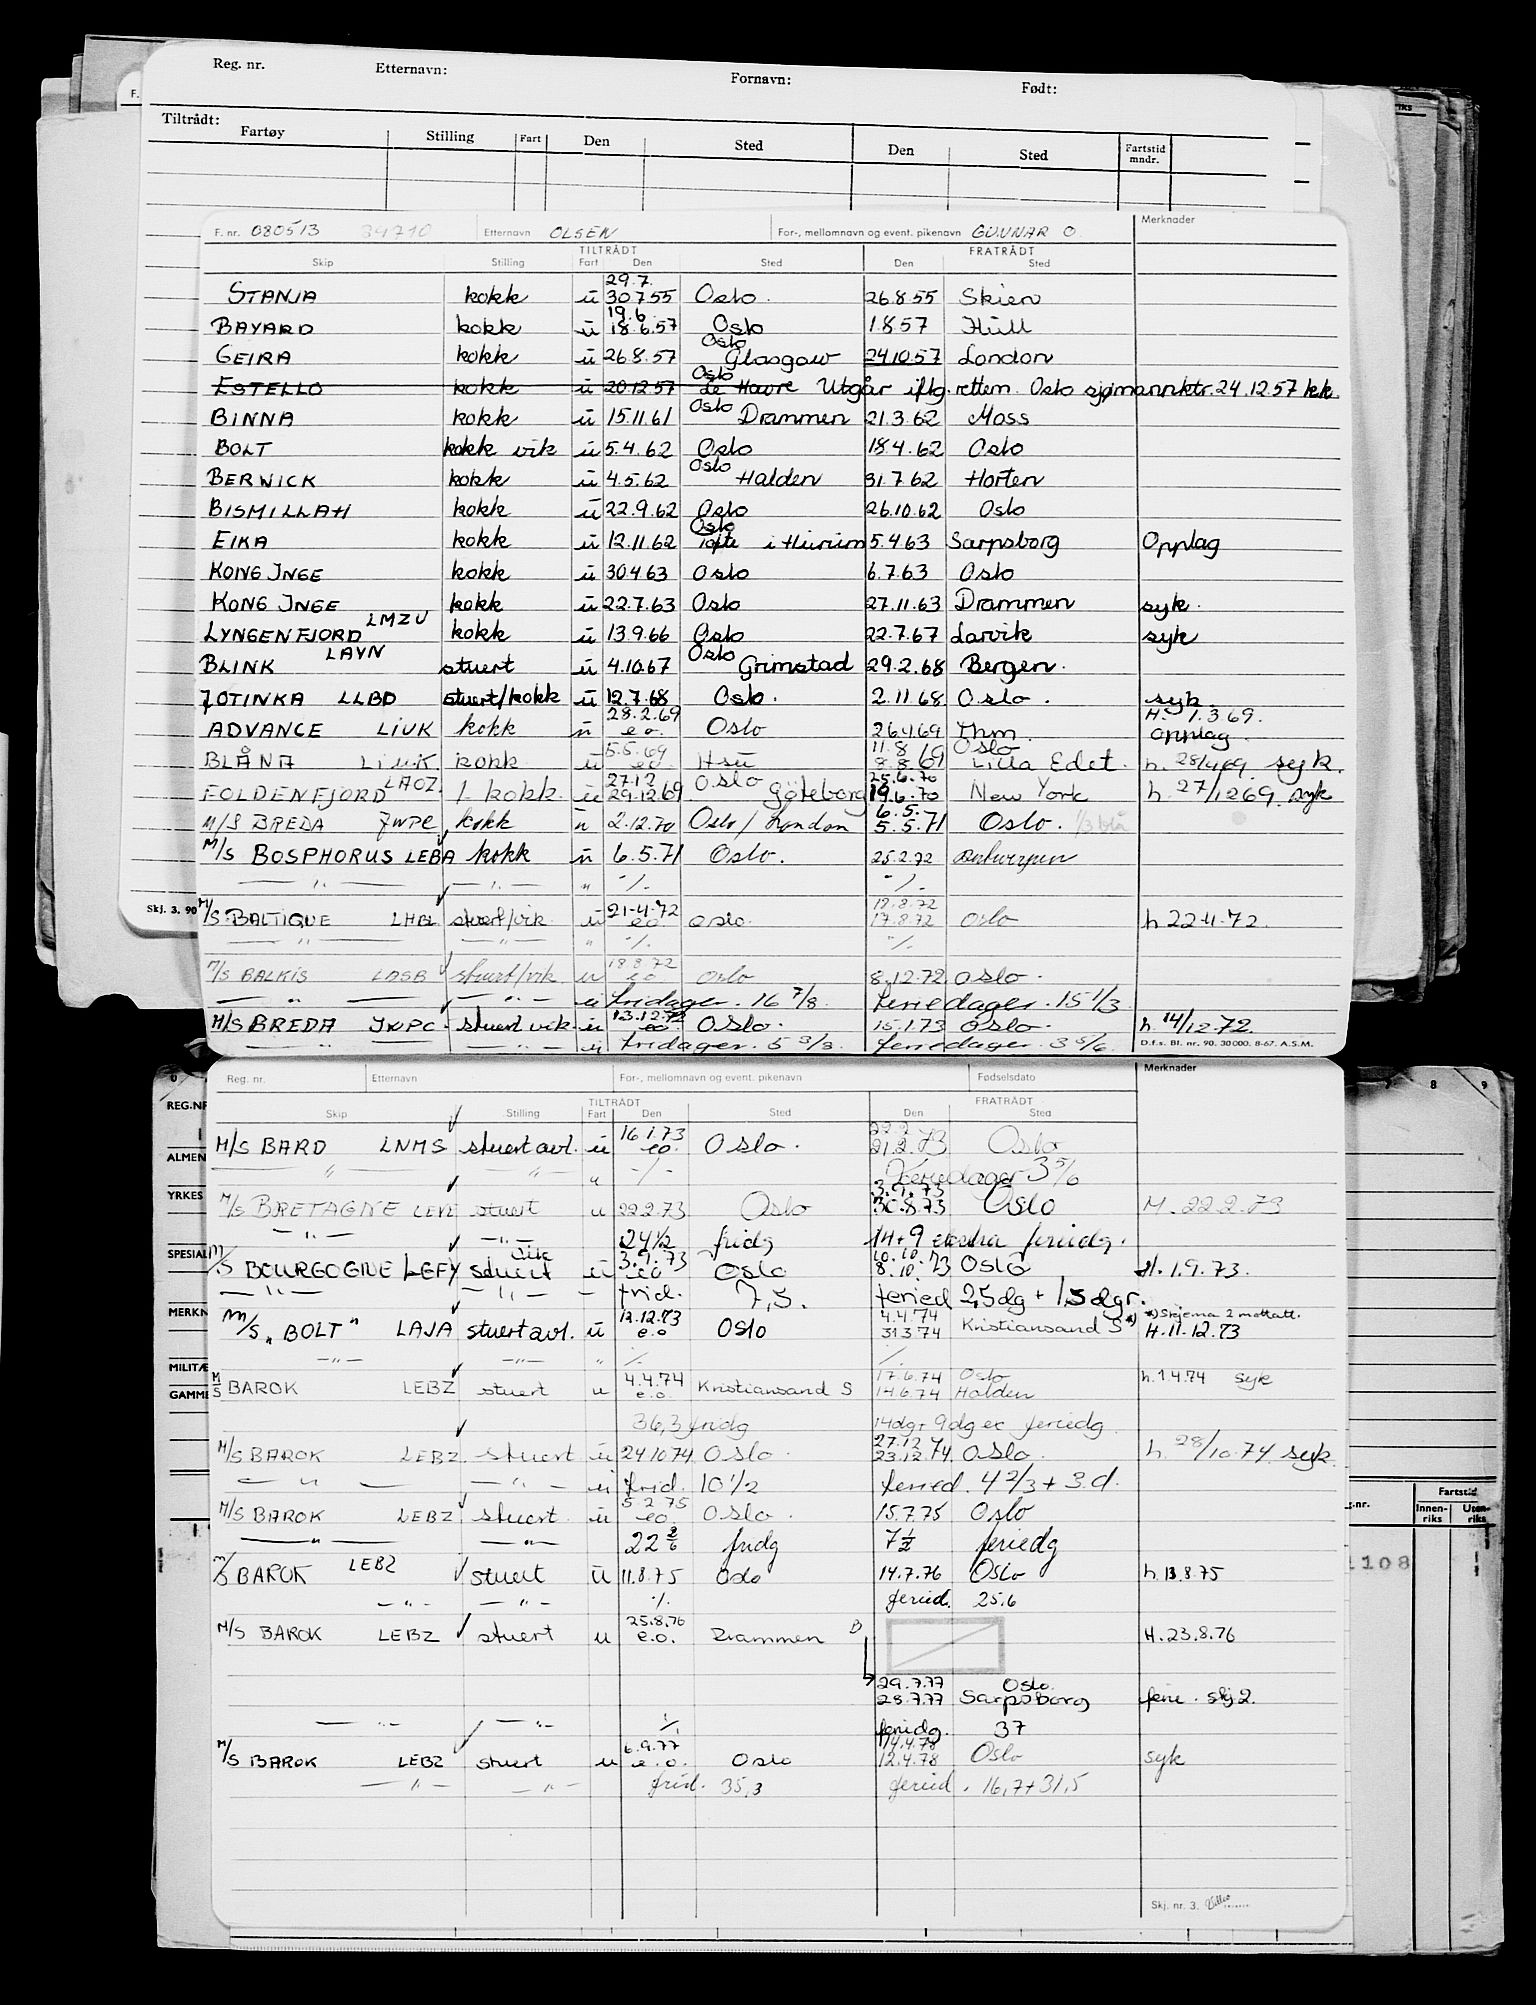 Reg. nr. Etternavn: Fornavn: Født:
Tiltrådt:
Fartøy Stilling Fart Den Sted Den Sted Fartstid mndr.
F. nr. 080513 34710 Etternavn OLSEN For-, mellomnavn og event. pikenavn GUNNAR O. Merknader
TILTRÅDT FRATRÅDT
Skip Stilling Fart Den Sted Den Sted
29.7.
STANJA kokk u 30.7.55 Oslo. 26.8.55 Skien
19.6.
BAYARD kokk u 18.6.57 Oslo 1.8.57 Hull
Oslo
GEIRA kokk u 26.8.57 Glasgow 24.10.57 London
Oslo
ESTELLO kokk u 20.12.57 Le Havre Utgår iflg. rettem. Oslo sjømannktr. 24.12.57 kk.
BINNA kokk u 15.11.61 Oslo Drammen 21.3.62 Moss
BOLT kokk vik u 5.4.62 Oslo 18.4.62 Oslo
Oslo
BERWICK kokk u 4.5.62 Halden 31.7.62 Horten
BISMILLAH kokk u 22.9.62 Oslo 26.10.62 Oslo
Oslo
EIKA kokk u 12.11.62 Tofte i Hurum 5.4.63 Sarpsborg Opplag
KONG INGE kokk u 30.4.63 Oslo 6.7.63 Oslo
KONG INGE kokk u 22.7.63 Oslo 27.11.63 Drammen syk.
LYNGENFJORD LMZU kokk u 13.9.66 Oslo 22.7.67 Larvik syk
BLINK LAVN stuert u 4.10.67 Oslo Grimstad 29.2.68 Bergen.
JOTINKA LLBD stuert/kokk u 12.7.68 Oslo. 2.11.68 Oslo. syk.
28.2.69 H. 1.3.69.
ADVANCE LIUK kokk u e.o. Oslo 26.4.69 Thm. opplag.
5.5.69 11.8 Oslo
BLÅNA LIUK. kokk u eo Hsu 8.8.69 Lilla Edet. h. 28/4 69. syk.
27.12 Oslo 25.6.70
FOLDENFJORD LAOZ. 1. kokk. u 29.12.69 Göteborg 19.6.70 New York h. 27/12 69. syk
6.5.
M/S BREDA JWPC kokk u 2.12.70 Oslo/London 5.5.71 Oslo.
M/S BOSPHORUS LEBA kokk u 6.5.71 Oslo. 25.2.72 Antwerpen
— " — — " — " -/- -/-
21.4.72 18.8.72
M/S BALTIQUE LHBL stuert/vik u eo. Oslo. 17.8.72 Oslo h 22.4.72.
— " — — " — " -/- -/-
18.8.72
M/S BALKIS LDSB stuert/vik u eo Oslo 8.12.72 Oslo.
— " — — " — u fridager. 16 7/8. feriedager. 15 1/3
13.12.72
M/S BREDA JWPC. stuert vik. u eo Oslo. 15.1.73 Oslo. h. 14/12.72.
— " — — " — u fridager. 5 3/8. feriedager. 3 5/6. D.f.s. Bl. nr. 90. 30 000. 8-67. A.S.M.
Skj. 3. 90
Reg. nr. Etternavn For-, mellomnavn og event. pikenavn Fødselsdato Merknader
TILTRÅDT FRATRÅDT
Skip Stilling Fart Den Sted Den Sted
16.1.73 22.2
M/S BARD LNMS stuert avl. u eo. Oslo. 21.2.73 Oslo
— " — — " — " -/- Feriedager 3 5/6
3.9.73
M/S BRETAGNE LEVE stuert u 22.2.73 Oslo 30.8.73 Oslo H. 22.2.73
— " — — " — 24 1/2 fridg 14 + 9 ekstra feriedg.
vik 3.9.73 10.10.
M/S BOURGOGNE LEFY stuert u eo Oslo 8.10.73 Oslo H. 1.9.73.
— " — — " — frid. 7,5. feried 2,5dg + 1,5dgr.
12.12.73 4.4.74 *) Skjema 2 mottatt.
M/S "BOLT" LAJA stuert avl. u e.o Oslo 31.3.74 Kristiansand S *) H. 11.12.73
— " — — " — " -/- -/-
4.4.74 17.6.74 Oslo
M/S BAROK LEBZ stuert u e.o. Kristiansand S 14.6.74 Halden h. 1.4.74 syk
36,3 fridg 14dg + 9dg ex feriedg
27.12
M/S BAROK LEBZ stuert u 24.10.74 Oslo. 23.12.74 Oslo. h. 28/10.74. syk
— " — — " — u frid. 10 1/2 feried. 4 2/3 + 3.d.
5.2.75
M/S BAROK LEBZ stuert. u eo. Oslo. 15.7.75 Oslo
— " — — " — 22 2/6 fridg 7 1/2 feriedg
M/S BAROK LEBZ stuert u 11.8.75 Oslo 14.7.76 Oslo h 13.8.75
— " — — " — -/- feried. 25.6
25.8.76
M/S BAROK LEBZ stuert u e.o. Drammen B H. 23.8.76
29.7.77 Oslo.
28.7.77 Sarpsborg ferie. skj 2.
— " — — " — -/- feriedg. 37
6.9.77 14.4.78
M/S BAROK LEBZ stuert u e.o. Oslo 12.4.78 Oslo syk
— " — — " — frid. 35,3 feried. 16,7+31,5
Skj. nr. 3.
REG.NR
ALMEN
YRKES
SPESIAL
MERKN
MILITÆ
GAMME
8 9
Fartstid
g.nr. Innen-riks Uten-riks
1108